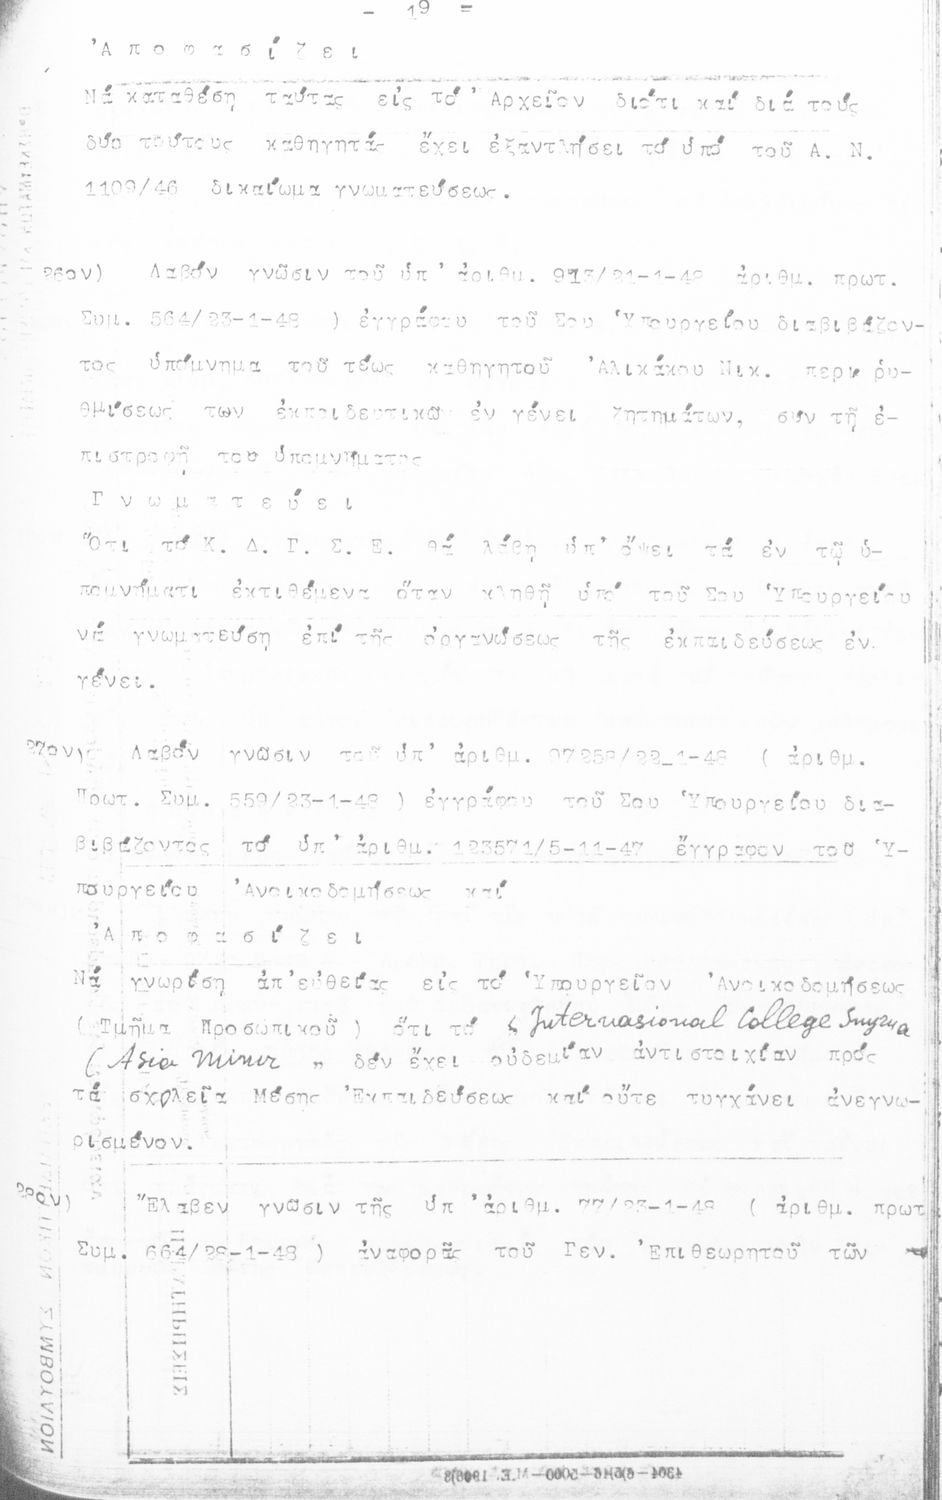 - 19 =
Ἀ π ο φ α σ ί ζ ε ι
Νά καταθέση ταύτας εἰς τό Ἀρχεῖον διότι καί διά τούς
δύο τούτους καθηγητάς ἔχει ἐξαντλήσει τό ὑπό τοῦ Α. Ν.
1109/46 δικαίωμα γνωματεύσεως.
26ον) Λαβόν γνῶσιν τοῦ ὑπ' ἀριθμ. 913/21-1-48 ἀριθμ. πρωτ.
Συμ. 564/23-1-48 ) ἐγγράφου τοῦ Σου Ὑπουργείου διαβιβάζον-
τος ὑπόμνημα τοῦ τέως καθηγητοῦ Ἀλικάκου Νικ. περι ῥυ-
θμίσεως των ἐκπαιδευτικῶν ἐν γένει ζητημάτων, συν τῇ ἐ-
πιστροφῇ του ὑπομνήματος
Γ ν ω μ α τ ε ύ ε ι
Ὅτι τό Κ. Δ. Γ. Σ. Ε. θά λάβη ὑπ' ὄψει τά ἐν τῷ ὑ-
πομνήματι ἐκτιθέμενα ὅταν κληθῇ ὑπό τοῦ Σου Ὑπουργείου
νά γνωματεύση ἐπί τῆς ὀργανώσεως τῆς ἐκπαιδεύσεως ἐν
γένει.
27ον) Λαβόν γνῶσιν τοῦ ὑπ' ἀριθμ. 97258/22-1-48 ( ἀριθμ.
Πρωτ. Συμ. 559/23-1-48 ) ἐγγράφου τοῦ Σου Ὑπουργείου δια-
βιβάζοντος τό ὑπ' ἀριθμ. 123571/5-11-47 ἔγγραφον τοῦ Ὑ-
πουργείου Ἀνοικοδομήσεως καί
Ἀ π ο φ α σ ί ζ ε ι
Νά γνωρίση ἀπ'εὐθείας εἰς τό Ὑπουργεῖον Ἀνοικοδομήσεως
( Τμῆμα Προσωπικοῦ ) ὅτι τό " Internasional College Smyrna
( Asia Minor " δέν ἔχει οὐδεμίαν ἀντιστοιχίαν πρός
τά σχολεῖα Μέσης Ἐκπαιδεύσεως καί οὔτε τυγχάνει ἀνεγνω-
ρισμένον.
28ον) Ἔλαβεν γνῶσιν τῆς ὑπ 'ἀριθμ. 77/23-1-48 ( ἀριθμ. πρωτ
Συμ. 664/28-1-48 ) ἀναφορᾶς τοῦ Γεν. Ἐπιθεωρητοῦ τῶν